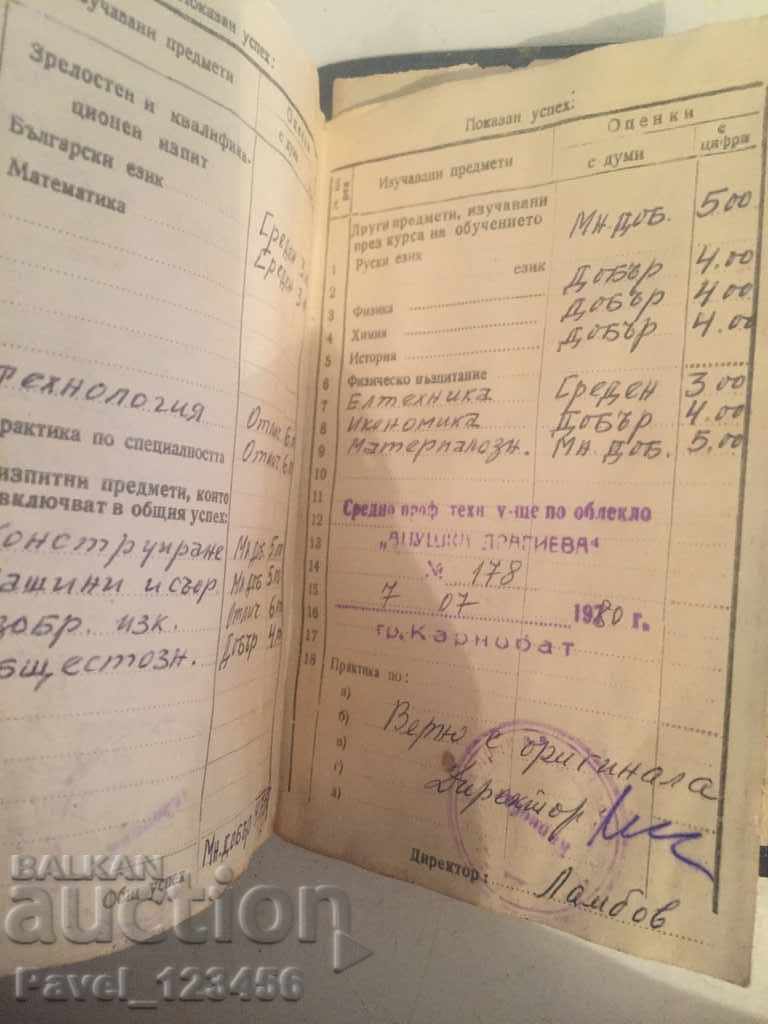 Показан успех:
Изучавани предмети
с думи
Зрелостен и квалифика-
ционен изпит
Български език
Математика
Среден 3
Среден 3
Технология Отлич. 6
практика по специалността Отлич. 6
изпитни предмети, които
включват в общия успех:
Конструиране Мн. доб. 5
Машини и съор. Мн. доб. 5
изобр. изк. Отлич. 6
Обществозн. Добър 4
Мн. добър
Общ успех
Показан успех:
Изучавани предмети
Оценки
с думи
с цифри
Други предмети, изучавани
през курса на обучението
1 Руски език Мн. доб. 5.00
2 език
3 Физика Добър 4.00
4 Химия Добър 4.00
5 История Добър 4.00
6 Физическо възпитание
7 Елтехника Среден 3.00
8 Икономика Добър 4.00
9 Материалозн. Мн. доб. 5.00
10
11
12 Средно проф техн у-ще по облекло
13 „АНУШКА ДРАГИЕВА“
14 № 178
15 7 07 1980 г.
16
17 гр. Карнобат
18 Практика по:
а)
б) Вярно с оригинала
в)
г) Директор:
д)
Директор: Ламбов
BALKAN
auction
Pavel_123456